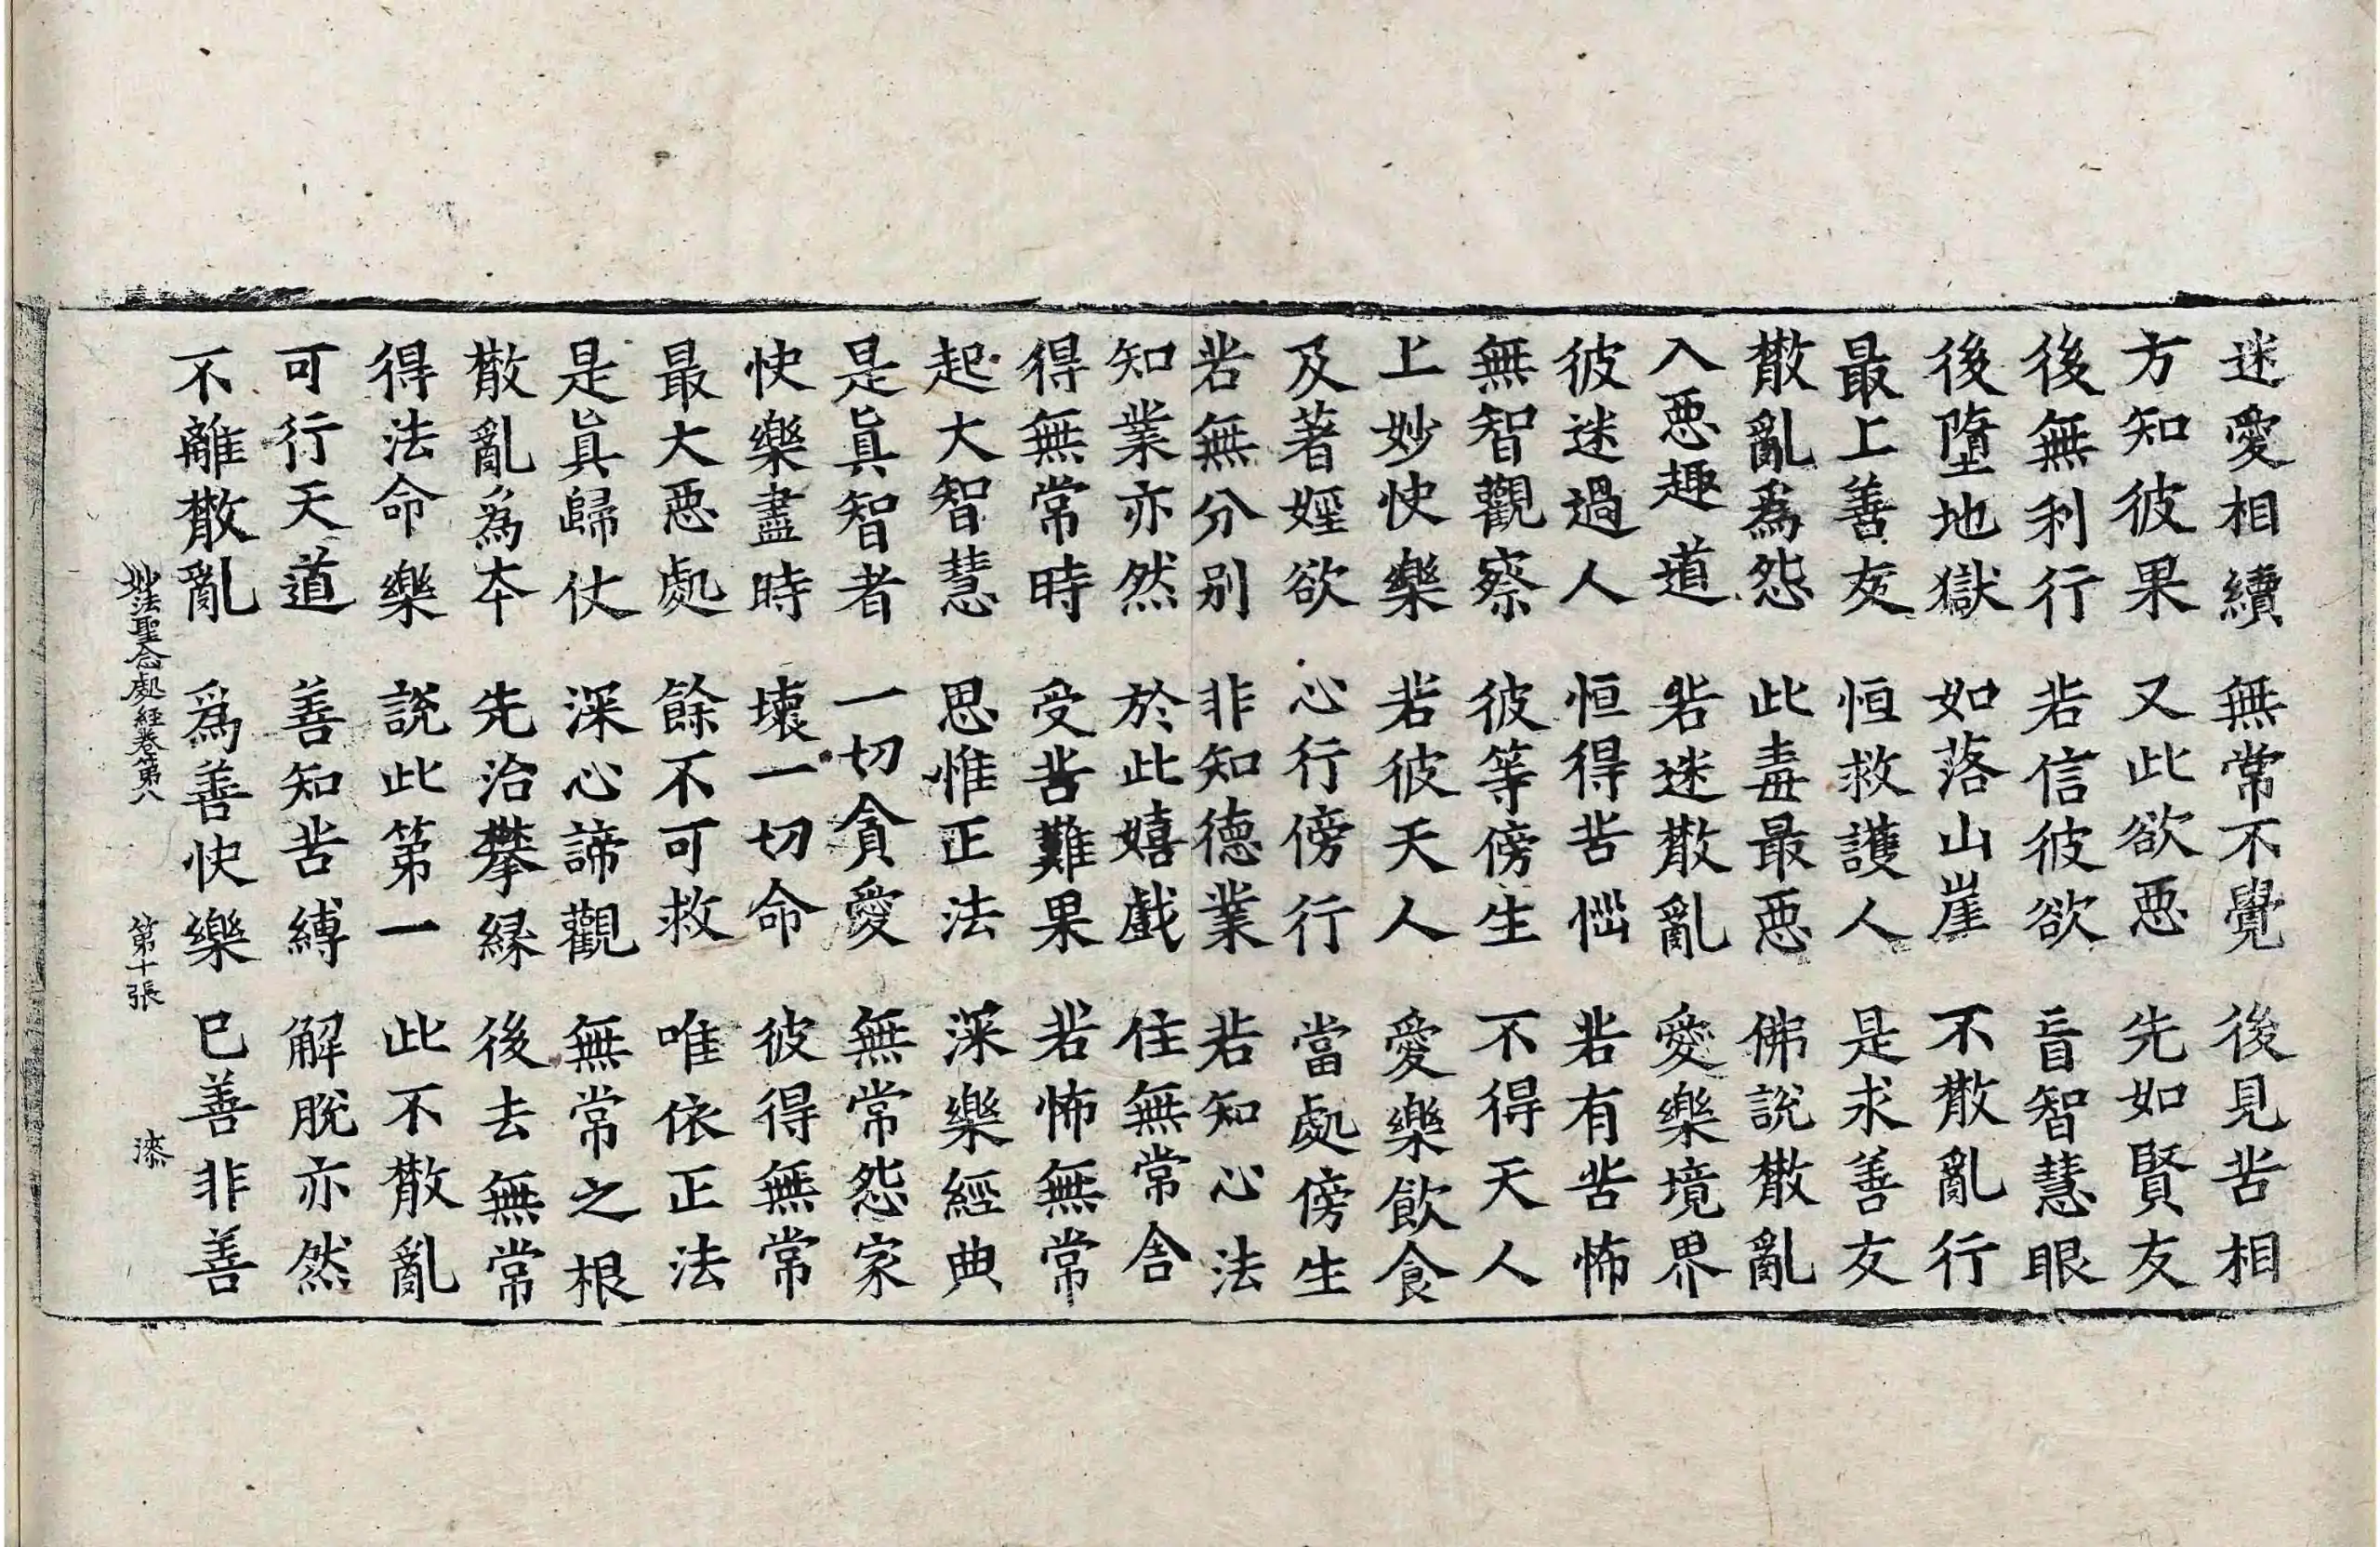 迷愛相續 無常不覺 後見苦相
方知彼果 又此欲惡 先如賢友
後無利行 若信彼欲 盲智慧眼
後墮地獄 如落山崖 不散亂行
最上善友 恒救護人 是求善友
散亂為怨 此毒最惡 佛說散亂
入惡趣道 若迷散亂 愛樂境界
彼迷過人 恒得苦惱 若有苦怖
無智觀察 彼等傍生 不得天人
上妙快樂 若彼天人 愛樂飲食
及著婬欲 心行傍行 當處傍生
若無分別 非知德業 若知心法
知業亦然 於此嬉戲 住無常舍
得無常時 受苦難果 若怖無常
起大智慧 思惟正法 深樂經典
是眞智者 一切貪愛 無常怨家
快樂盡時 壞一切命 彼得無常
最大惡處 餘不可救 唯依正法
是眞歸仗 深心諦觀 無常之根
散亂為本 先治攀緣 後去無常
得法命樂 說此第一 此不散亂
可行天道 善知苦縛 解脫亦然
不離散亂 爲善快樂 已善非善
妙法聖念處經卷第八 第十張 漆